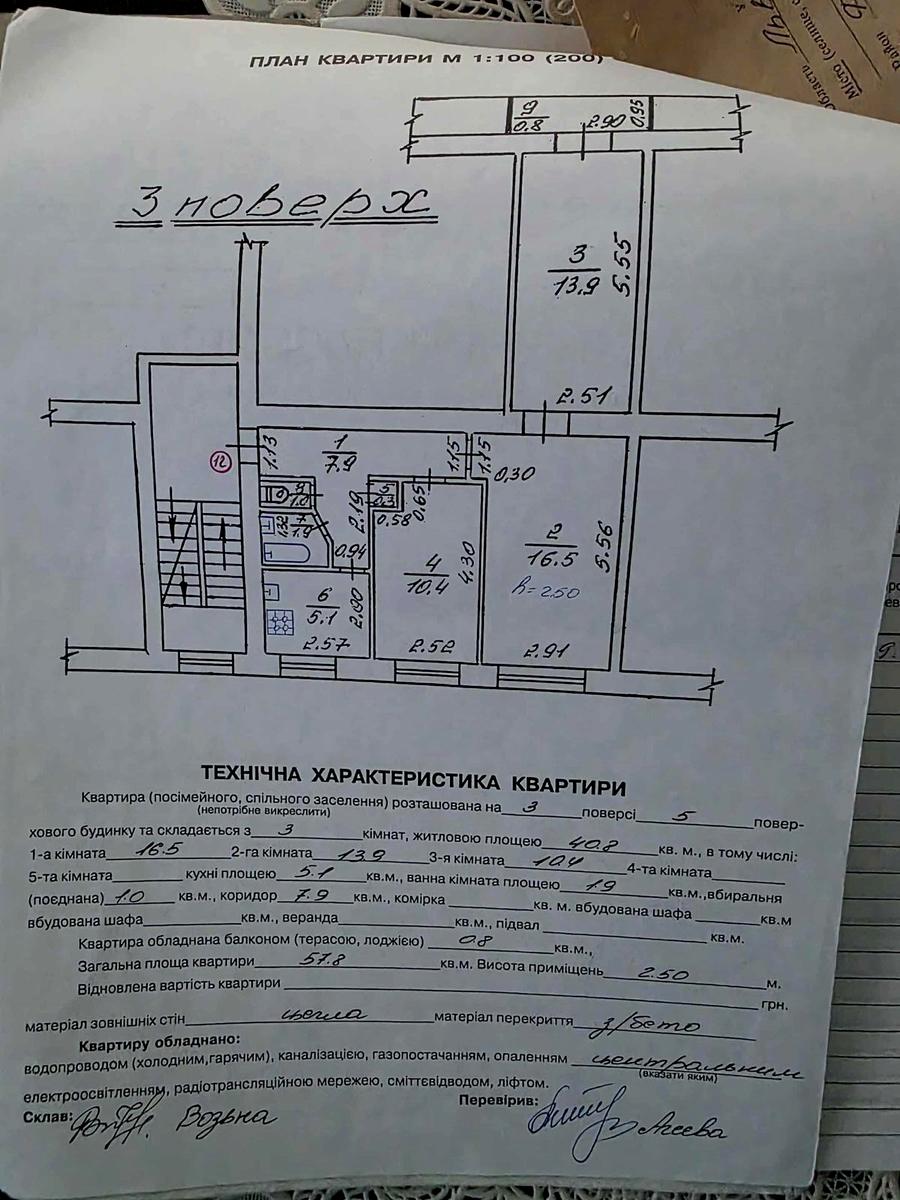 ПЛАН КВАРТИРИ М 1:100 (200)
область
Місто (селище,
Район
9
0.8
2.90
0.95
3 поверх
3
13.9
5.55
2.51
12
1.13
1
7.9
1.15
1.15
0,30
1.0
5
0.3
0.65
2.19
0,58
1.32
7
1.9
0.94
4
10.4
4.30
2
16.5
5.56
h=2.50
6
5.1
2.00
2.57
2.52
2.91
ТЕХНІЧНА ХАРАКТЕРИСТИКА КВАРТИРИ
Квартира (посімейного, спільного заселення) розташована на 3 поверсі 5 повер-
(непотрібне викреслити)
хового будинку та складається з 3 кімнат, житловою площею 40.8 кв. м., в тому числі:
1-а кімната 16.5 2-га кімната 13.9 3-я кімната 10.4 4-та кімната
5-та кімната кухні площею 5.1 кв.м., ванна кімната площею 1.9 кв.м.,вбиральня
(поєднана) 1.0 кв.м., коридор 7.9 кв.м., комірка кв. м. вбудована шафа кв.м
вбудована шафа кв.м., веранда кв.м., підвал кв.м.
Квартира обладнана балконом (терасою, лоджією) 0.8 кв.м.,
Загальна площа квартири 57.8 кв.м. Висота приміщень 2.50 м.
Відновлена вартість квартири грн.
матеріал зовнішніх стін цегла матеріал перекриття з/бето
Квартиру обладнано:
водопроводом (холодним,гарячим), каналізацією, газопостачанням, опаленням центральним
(вказати яким)
електроосвітленням, радіотрансляційною мережею, сміттєвідводом, ліфтом.
Склав: Возьна
Перевірив: Агеева